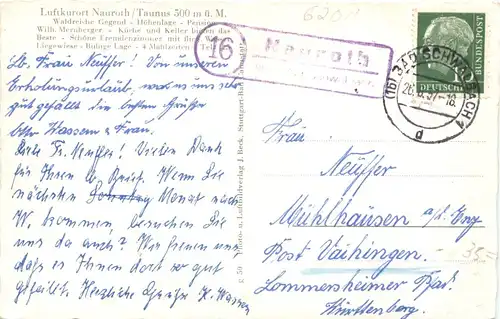 Luftkurort Nauroth / Taunus 500 m ü. M.
Waldreiche Gegend - Höhenlage - Pension
Wilh. Mernberger - Küche und Keller bieten das
Beste - Schöne Fremdenzimmer mit fließ.
Liegewiese - Ruhige Lage - 4 Mahlzeiten Tel.
620
(16) Nauroth
BAD SCHWALBACH 1
(16)
26.6.57-18
d
DEUTSCHE BUNDESPOST
Lb. Frau Neuffer! Von unseren
Erholungsurlaub, was es uns sehr
gut gefällt die besten Grüße
Otto Wassem u. Frau.
Liebe Fr. Neuffer! Vielen Dank
für Ihren lb. Brief. Wenn Sie
nächsten Monat nach
W. kommen, besuchen Sie
uns da auch? Wir freuen uns,
daß es Ihnen dort so gut
gefällt. Herzliche Grüße K. Wassem
g 50 Photo- u. Luftbildverlag J. Beck, Stuttgart-Bad
Frau
Neuffer
Mühlhausen a/d. Enz
Post Vaihingen.
Lommersheimer Bad.
Württemberg.
35=